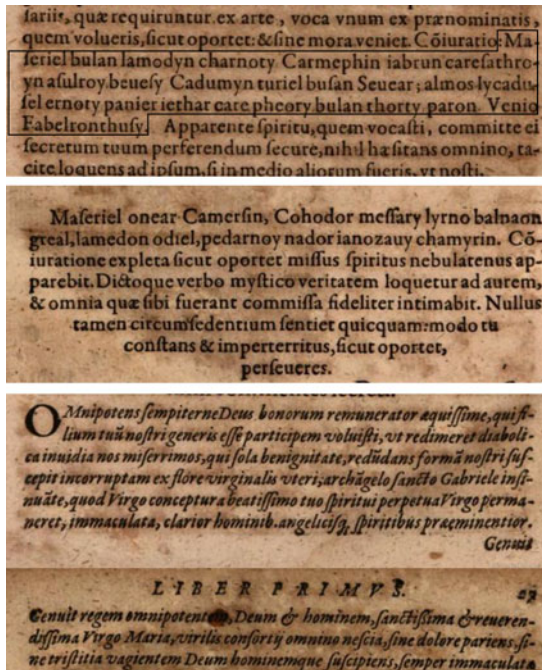 sariis, quæ requiruntur ex arte, voca vnum ex prænominatis,
quem volueris, sicut oportet: & sine mora veniet. Cõiuratio: Ma-
seriel bulan lamodyn charnoty Carmephin iabrun caresathro-
yn asulroy beuesy Cadumyn turiel busan Seuear; almos lycadu-
sel ernoty panier iethar care pheory bulan thorty paron. Venio
Fabelronthusy. Apparente spiritu, quem vocasti, committe ei
secretum tuum perferendum secure, nihil hæsitans omnino, ta-
cite loquens ad ipsum, si in medio aliorum fueris, vt nosti.
Maseriel onear Camersin, Cohodor messary lyrno balnaon
greal, lamedon odiel, pedarnoy nador ianozauy chamyrin. Cõ-
iuratione expleta sicut oportet missus spiritus nebulatenus ap-
parebit. Dictoque verbo mystico veritatem loquetur ad aurem,
& omnia quæ sibi fuerant commissa fideliter intimabit. Nullus
tamen circumsedentium sentiet quicquam: modo tu
constans & imperterritus, sicut oportet,
perseueres.
OMnipotens sempiterne Deus bonorum remunerator æquissime, qui fi-
lium tuũ nostri generis esse participem voluisti, vt redimeret diaboli-
ca inuidia nos miserrimos, qui sola benignitate, redũdans formã nostri sus-
cepit incorruptam ex flore virginalis vteri; archãgelo sancto Gabriele insi-
nuãte, quod Virgo conceptura beatissimo tuo spiritui perpetua Virgo perma-
neret, immaculata, clarior hominib. angelicisq, spiritibus præeminentior.
Genuit
LIBER PRIMVS.
Genuit regem omnipotentem, Deum & hominem, sanctissima & reueren-
dissima Virgo Maria, virilis consortij omnino nescia, sine dolore pariens, si-
ne tristitia vagientem Deum hominemque suscipiens, semper immaculata